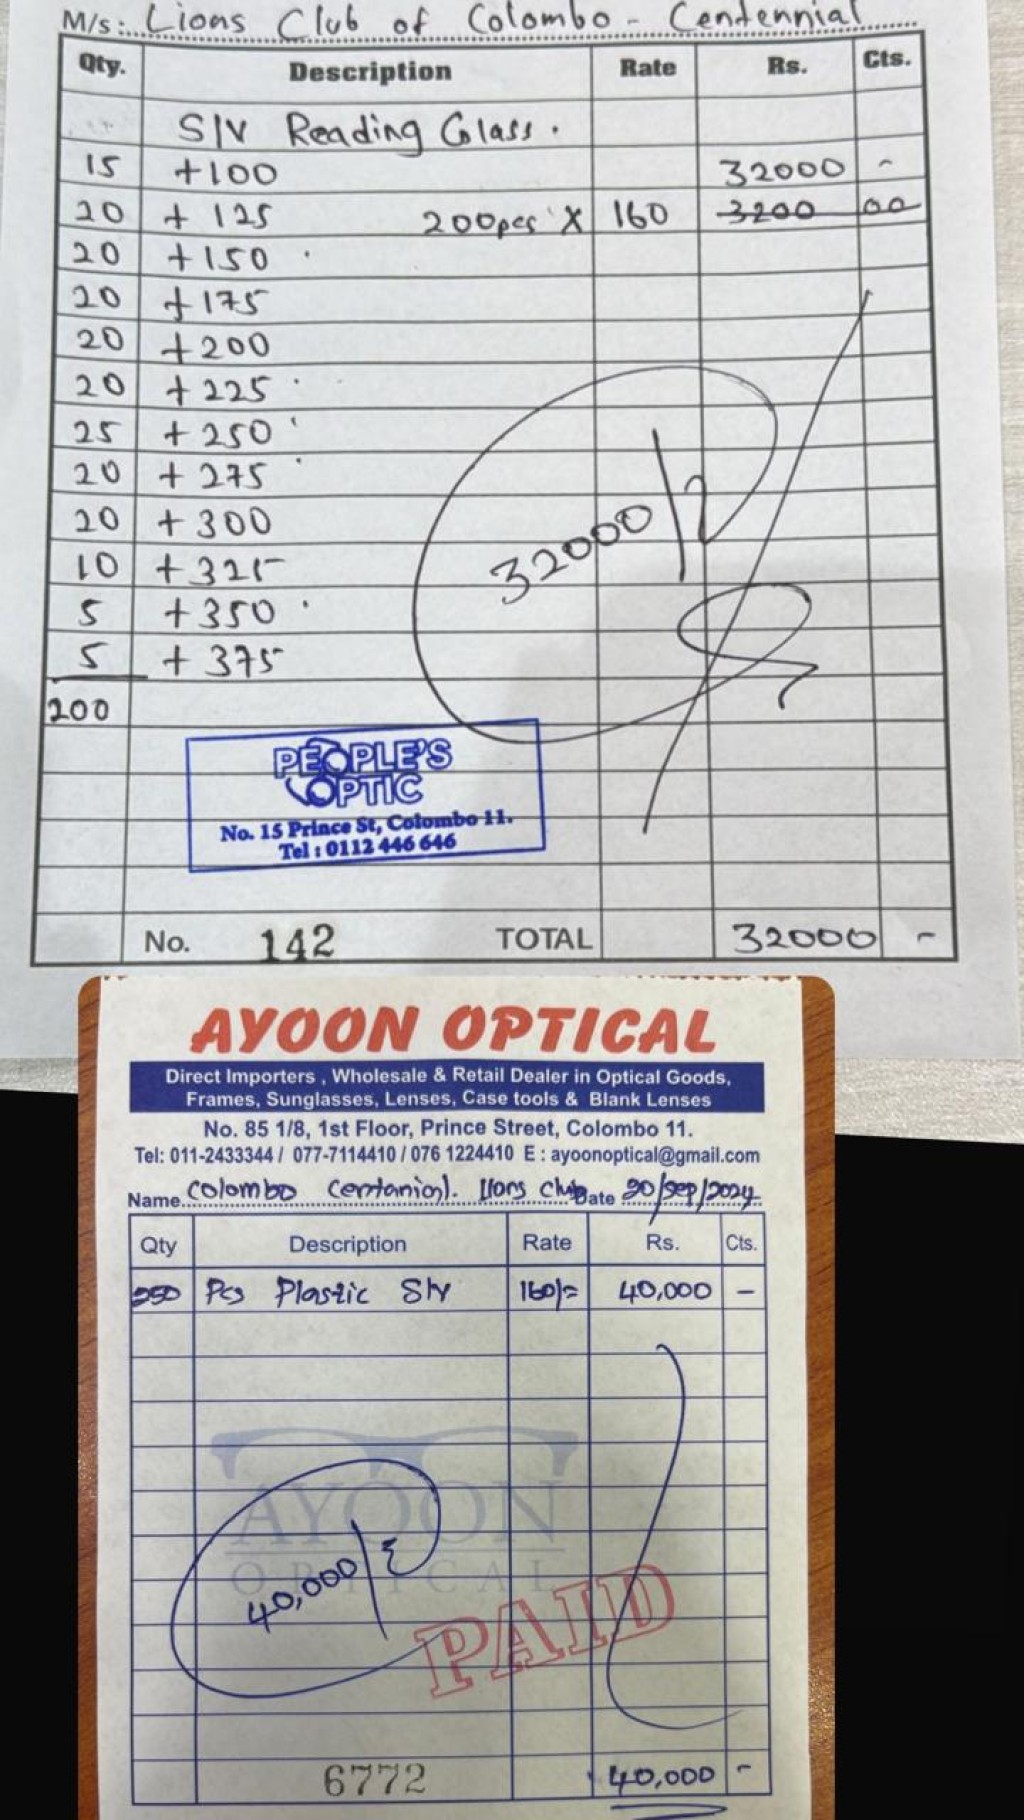 M/s: Lions Club of Colombo - Centennial
Qty. Description Rate Rs. Cts.
S/V Reading Glass.
15 +100 32000 -
20 +125 200pcs X 160 3200 00
20 +150
20 +175
20 +200
20 +225
25 +250
20 +275
20 +300
10 +325
5 +350
5 +375
200
32000/
PEOPLE'S
OPTIC
No. 15 Prince St, Colombo 11.
Tel : 0112 446 646
No. 142 TOTAL 32000 -
AYOON OPTICAL
Direct Importers , Wholesale & Retail Dealer in Optical Goods,
Frames, Sunglasses, Lenses, Case tools & Blank Lenses
No. 85 1/8, 1st Floor, Prince Street, Colombo 11.
Tel: 011-2433344 / 077-7114410 / 076 1224410 E : ayoonoptical@gmail.com
Name Colombo Centanial. lions club Date 20/Sep/2024
Qty Description Rate Rs. Cts.
250 Pcs Plastic S/V 160/= 40,000 -
AYOON
OPTICAL
40,000/
PAID
6772 40,000 -